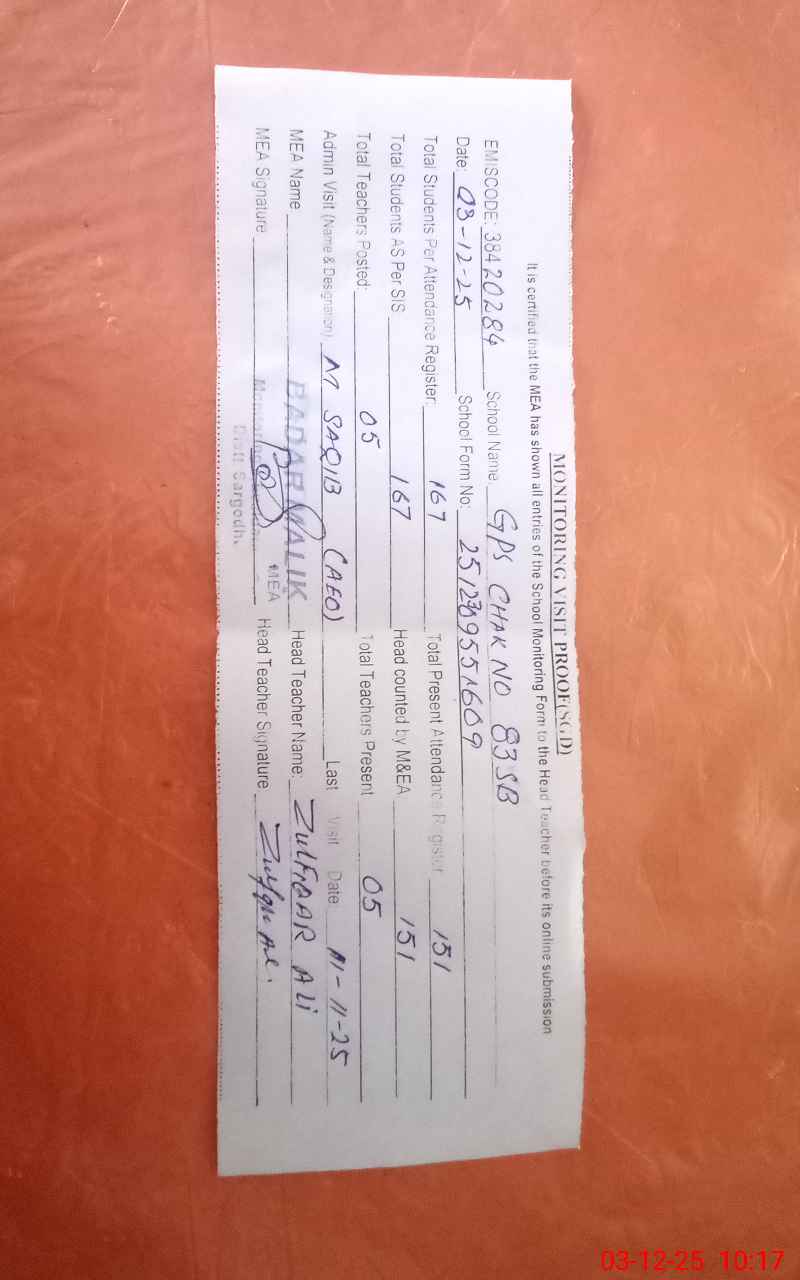 MONITORING VISIT PROOF(SGD)
It is certified that the MEA has shown all entries of the School Monitoring Form to the Head Teacher before its online submission
EMISCODE: 38420284 School Name: GPS CHAK NO 83 SB
Date: 03-12-25 School Form No:
Total Students Per Attendance Register: 167 Total Present Attendance Register 151
Total Students AS Per SIS 167 Head counted by M&EA 151
Total Teachers Posted: 05 Total Teachers Present 05
Admin Visit (Name & Designation) M SAQIB (AEO) Last Visit Date: 11-25
MEA Name BADAR MALIK Head Teacher Name: ZULFIQAR ALi
MEA Signature MEA Head Teacher Signature
Distt Sargodh.
03-12-25 10:17